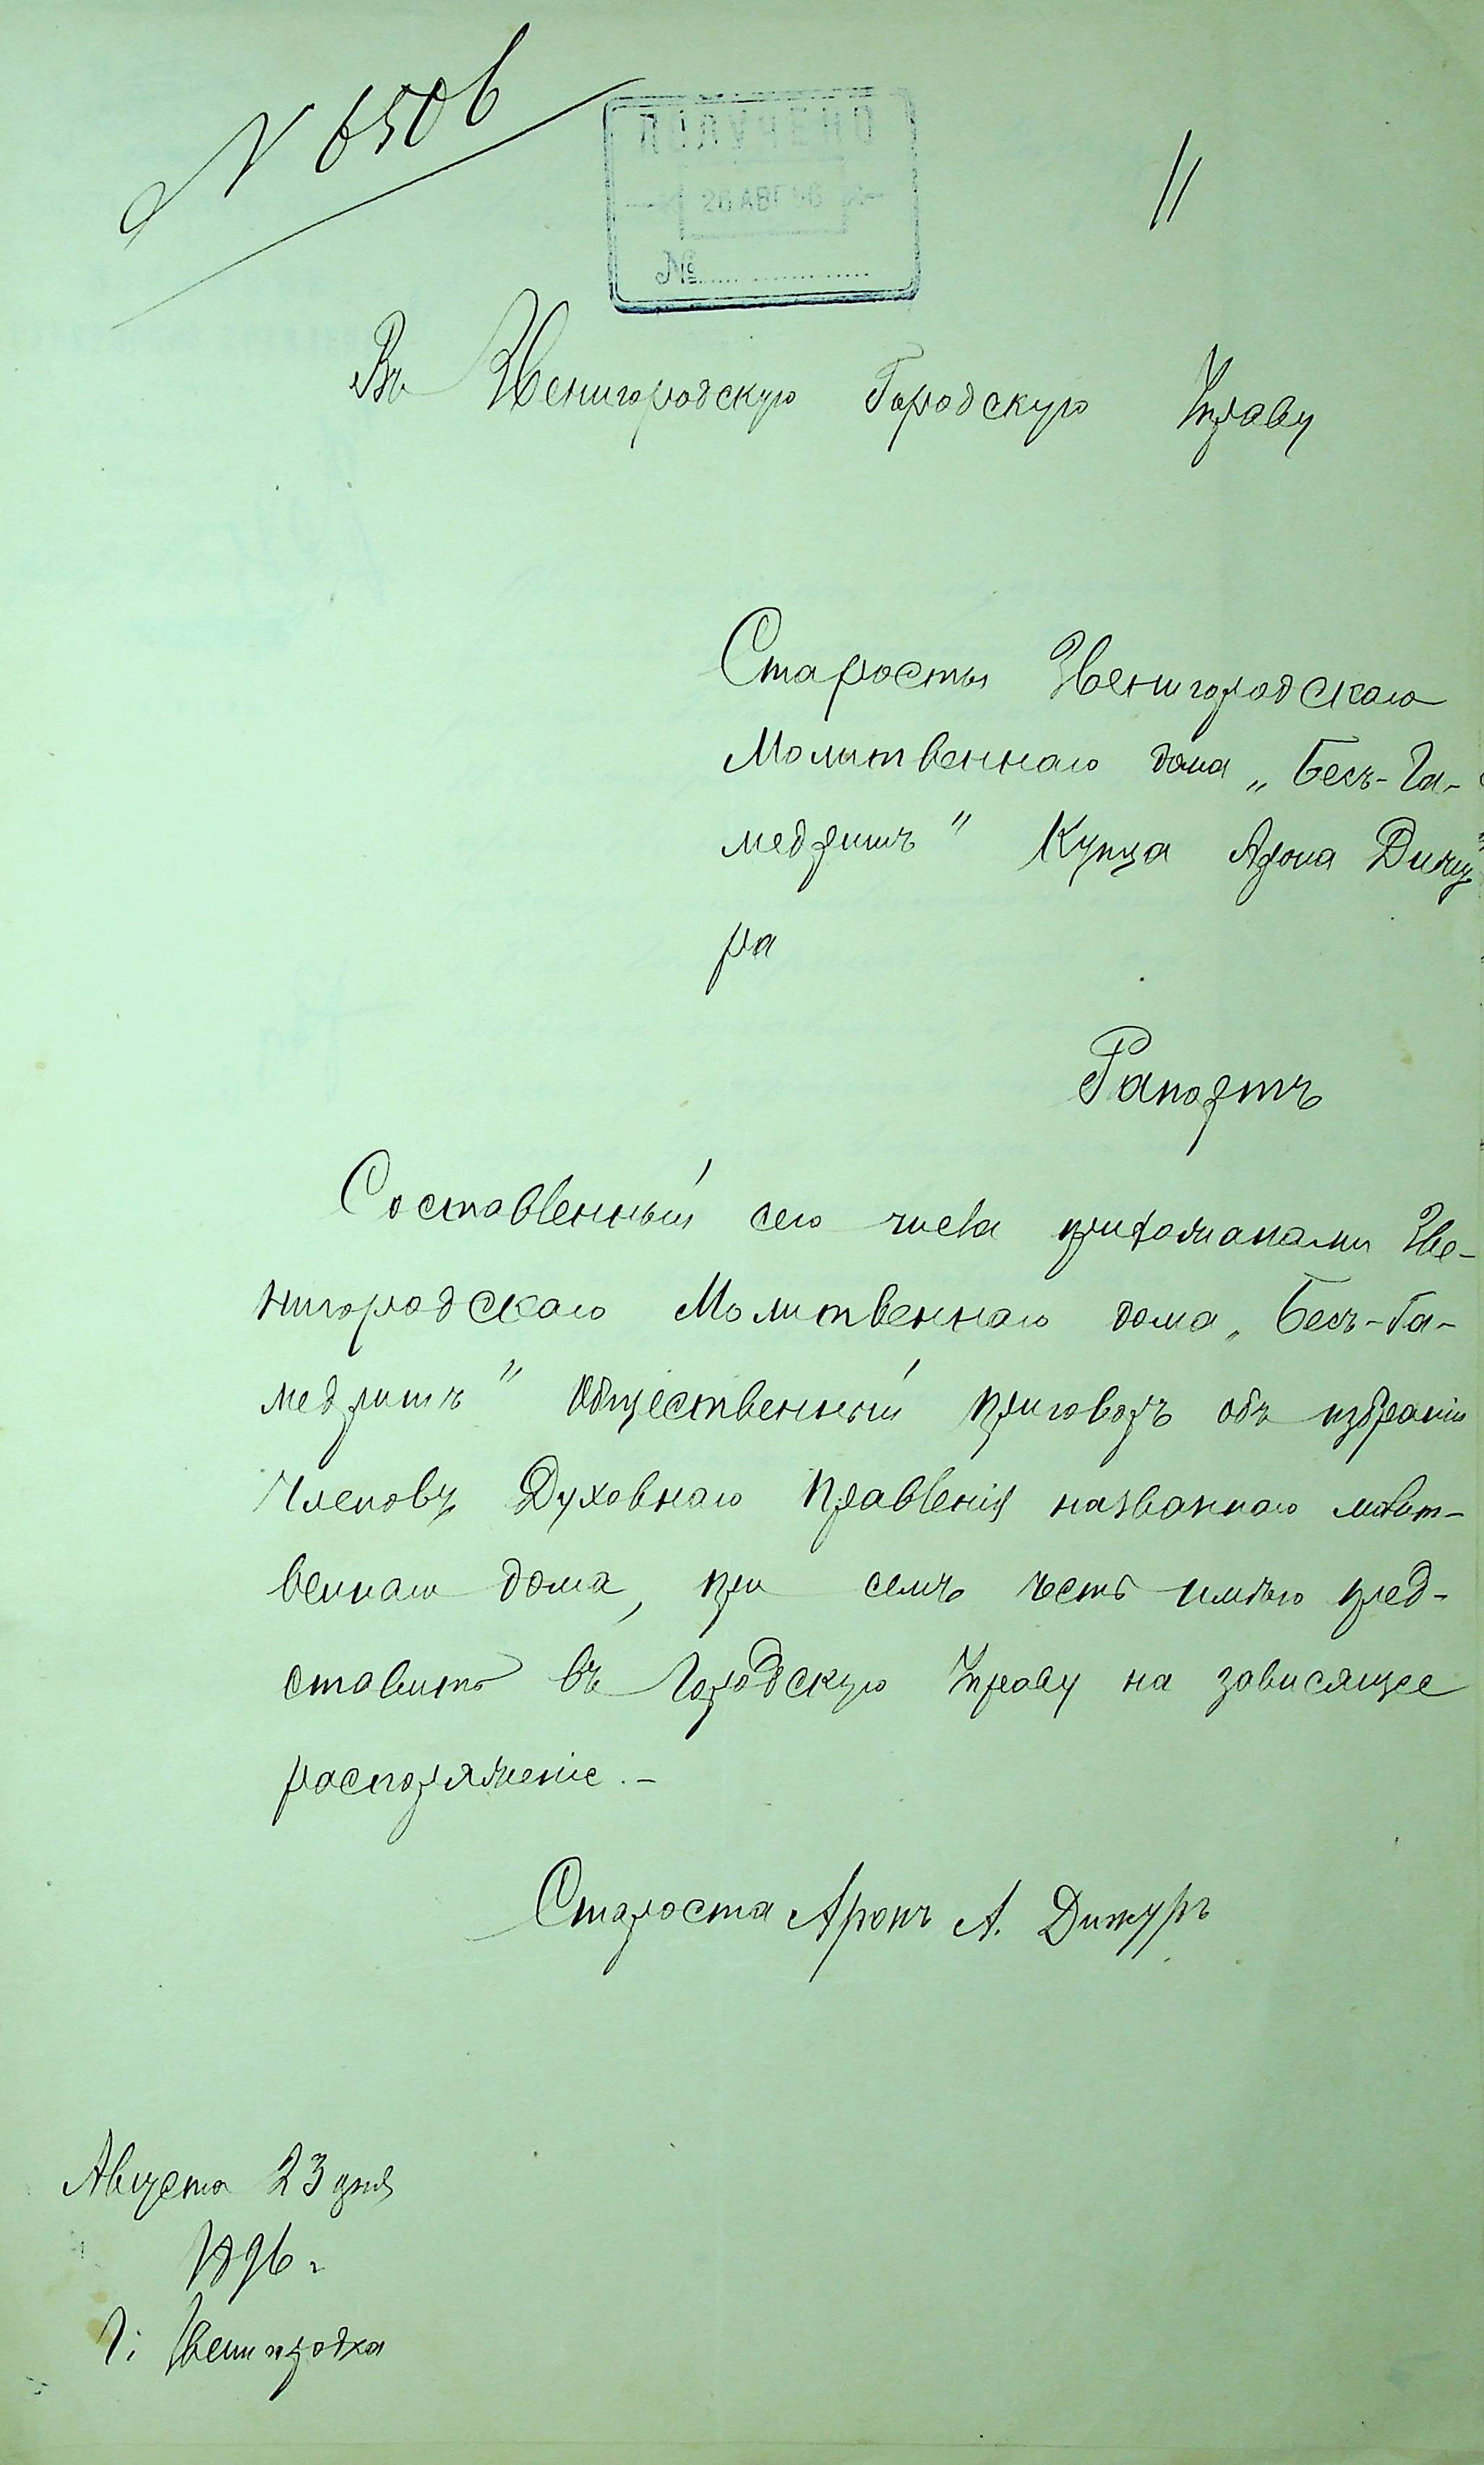 N 6506
ПОЛУЧЕНО
26 АВГ 96
№
11
Въ Звенигородскую Городскую Управу
Старосты Звенигородскаго
Молитвеннаго дома „Бесъ-Га-
медришъ" Купца Арона Дижу
ра
Рапортъ
Составленный сего числа прихожанами Зве-
нигородскаго Молитвеннаго дома „Бесъ-Га-
медришъ" Общественный приговоръ объ избраніи
Членовъ Духовнаго Правленія названнаго молит-
веннаго дома, при семъ честь имѣю пред-
ставить въ Городскую Управу на зависящее
распоряженіе.-
Староста Аронъ А. Дижуръ
Августа 23 дня
1896 г.
Г: Звенигородка